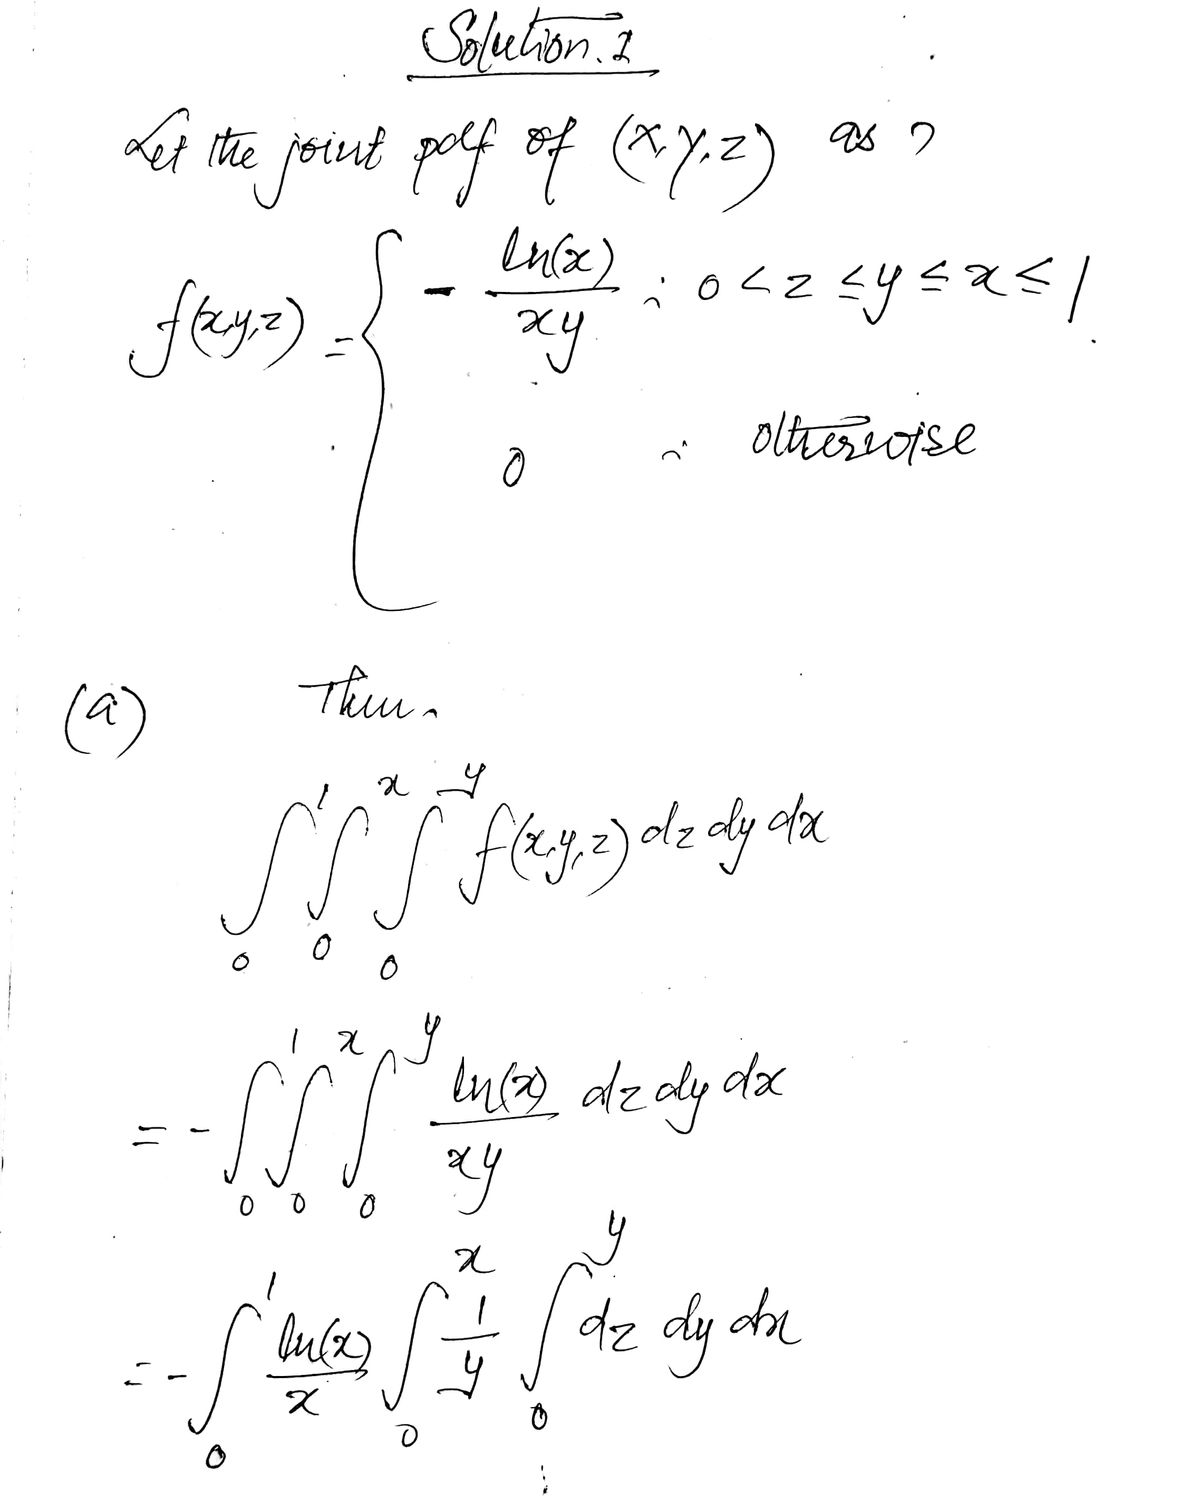 Solution. 1
Let the joint pdf of (X, Y, Z) as ;
f(x,y,z) = { - ln(x)/xy ; 0 < z ≤ y ≤ x ≤ 1
0 ; otherwise
(a) Then,
∫₀¹ ∫₀ˣ ∫₀ʸ f(x,y,z) dz dy dx
= - ∫₀¹ ∫₀ˣ ∫₀ʸ ln(x)/xy dz dy dx
= - ∫₀¹ ln(x)/x ∫₀ˣ 1/y ∫₀ʸ dz dy dx
⋮